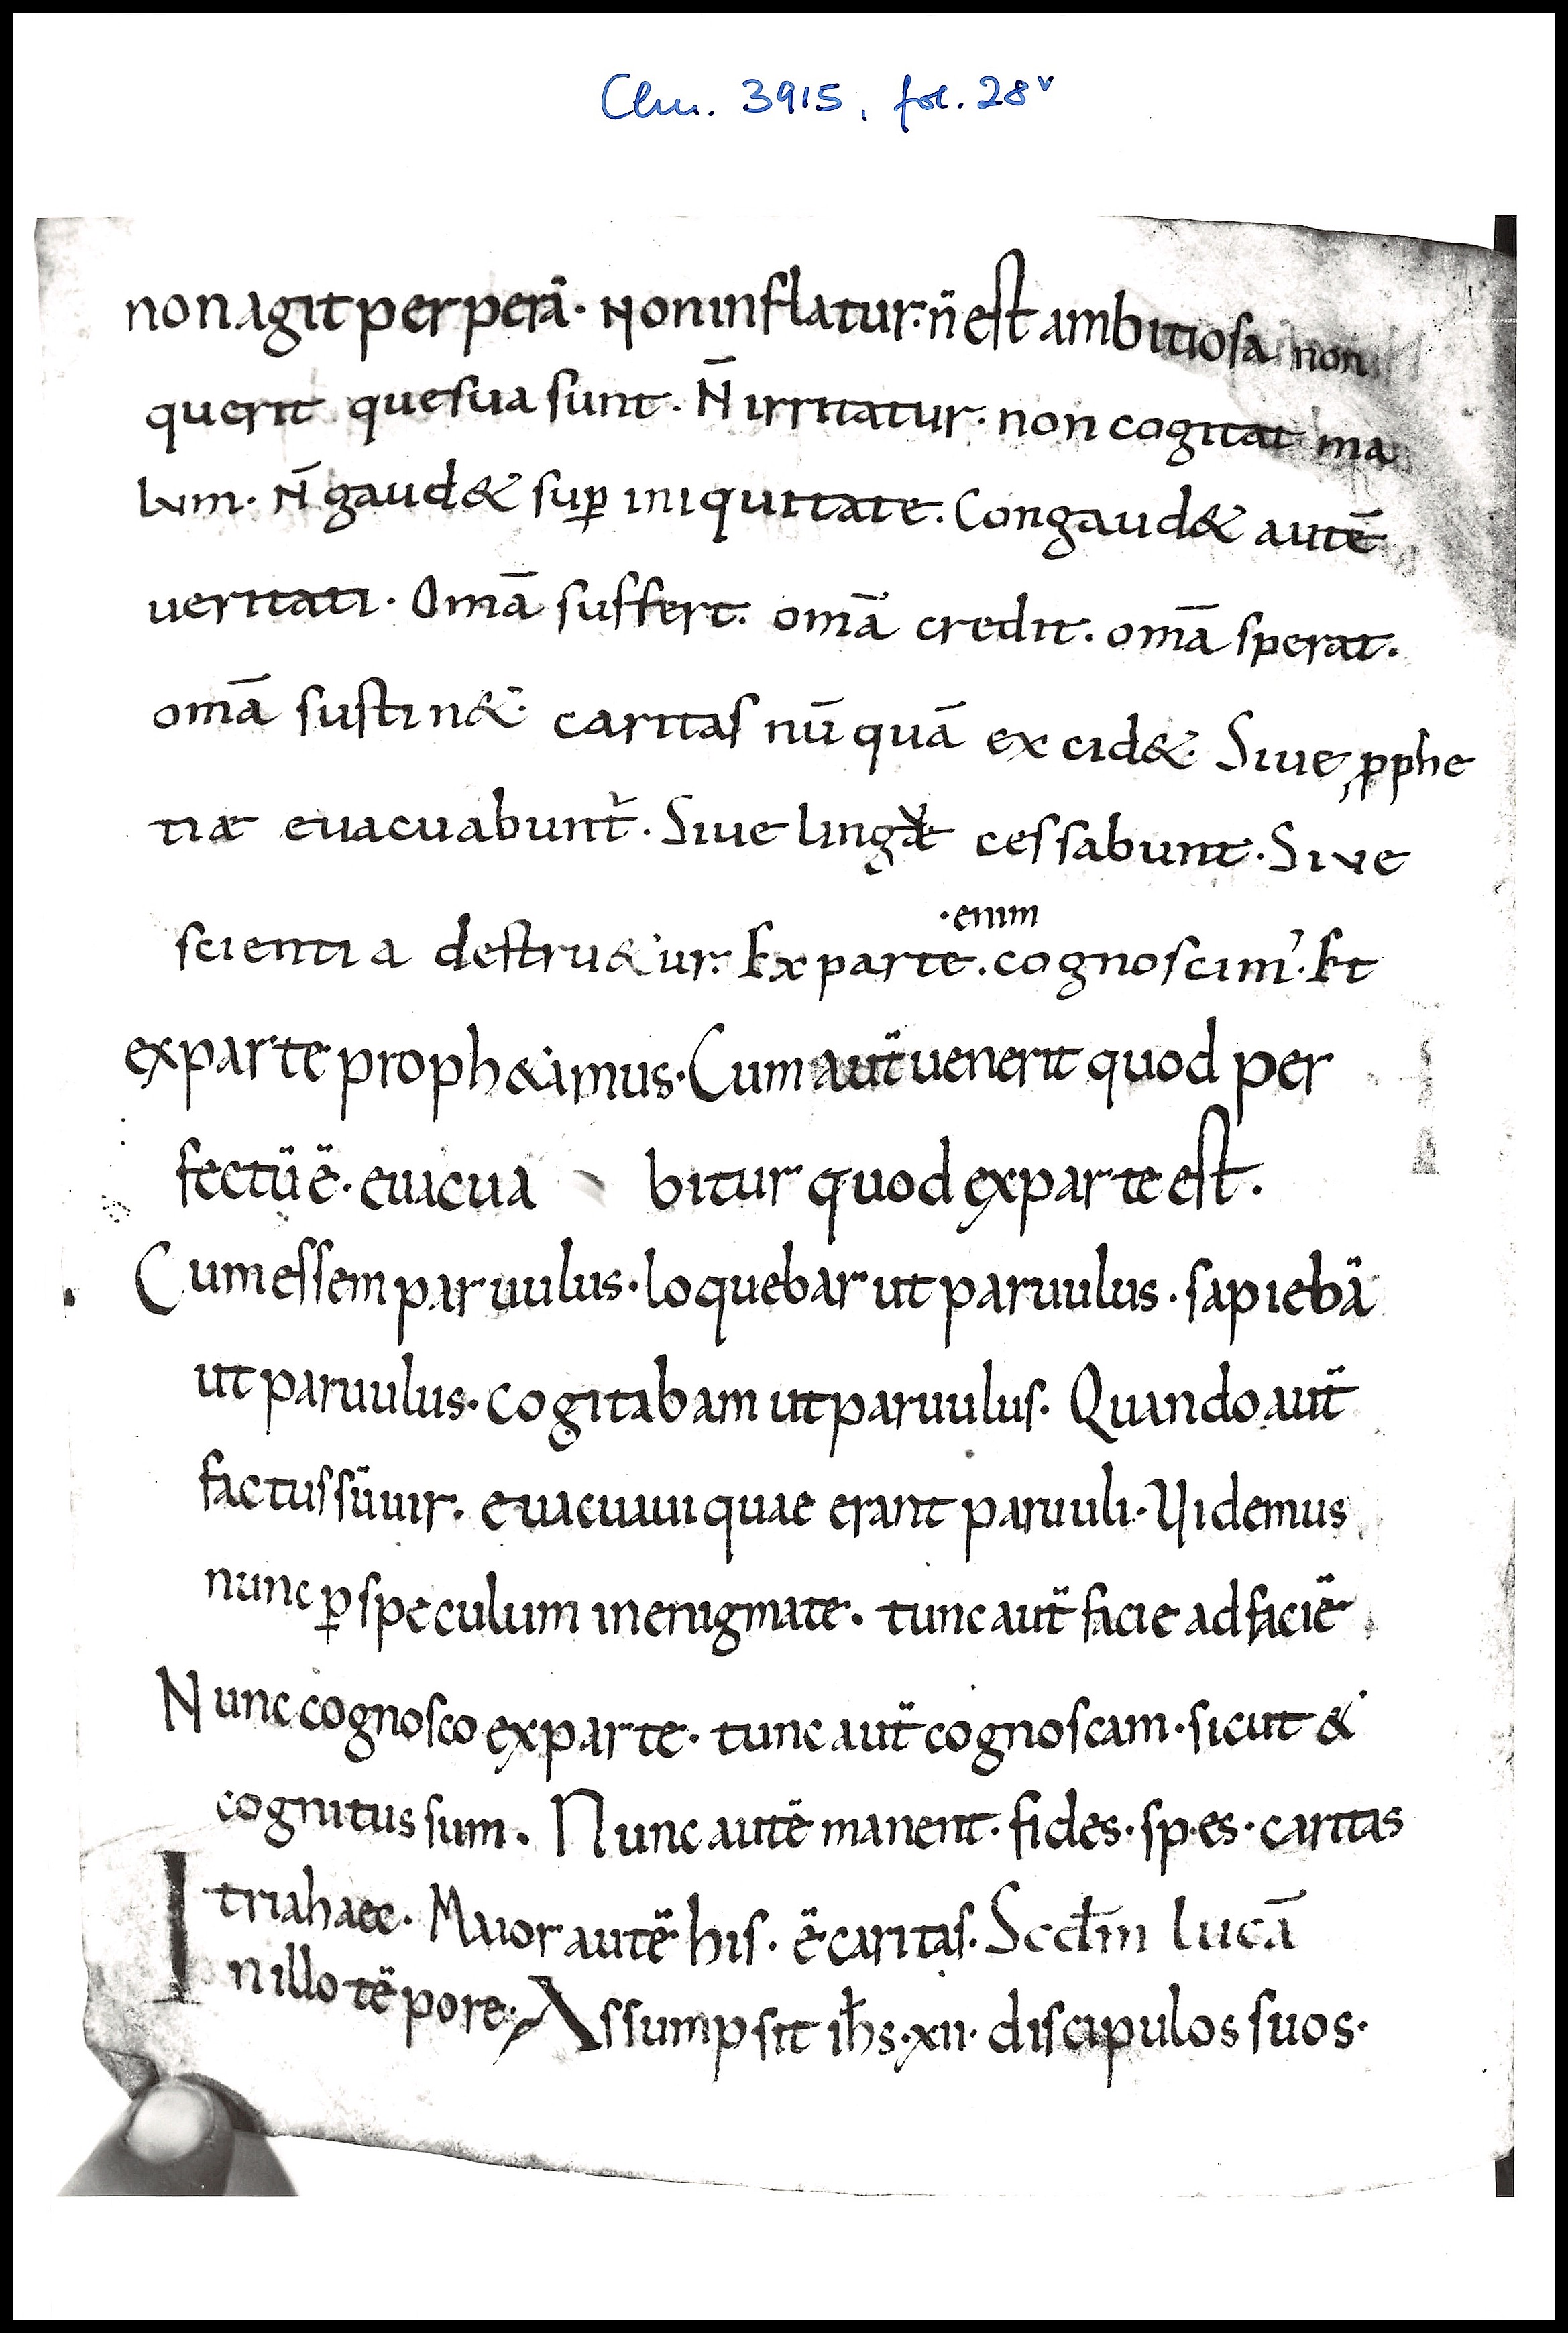 Clm. 3915, fol. 28v
non agit perperā. Non inflatur. n̄ est ambitiosa non
querit que sua sunt. N̄ irritatur. non cogitat ma
lum. N̄ gaud& suꝑ iniquitate. Congaud& autē
ueritati. Omā suffert. omā credit. omā sperat.
omā sustin&. caritas nū quā excid&. Siue ꝓphe
tiæ euacuabunt᷑. Siue linguæ cessabunt. Siue
scientia destru&ur. Ex parte. cognoscim᾽. Et
.enim
ex parte proph&imus. Cum aut̄ uenerit quod per
fectū ē. euacua bitur quod ex parte est.
Cum essem paruulus. loquebar ut paruulus. sapiebā
ut paruulus. cogitabam ut paruulus. Quando aut̄
factus sū uir. euacuaui quae erant paruuli. Uidemus
nunc ꝑ speculum in enigmate. tunc aut̄ facie ad faciē
Nunc cognosco ex parte. tunc aut̄ cognoscam. sicut &
cognitus sum. Nunc autē manent. fides. spes. caritas
tria haec. Maior autē his. ē caritas. Scd̄m lucā
In illo tēpore. Assumpsit ih̄s. xii. discipulos suos.